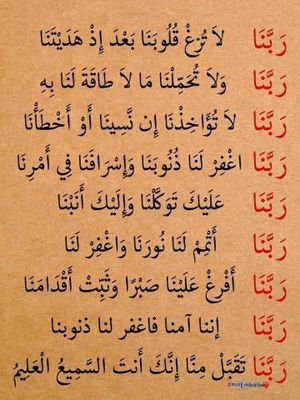 رَبَّنَا لَا تُزِغْ قُلُوبَنَا بَعْدَ إِذْ هَدَيْتَنَا
رَبَّنَا وَلَا تُحَمِّلْنَا مَا لَا طَاقَةَ لَنَا بِهِ
رَبَّنَا لَا تُؤَاخِذْنَا إِن نَّسِينَا أَوْ أَخْطَأْنَا
رَبَّنَا اغْفِرْ لَنَا ذُنُوبَنَا وَإِسْرَافَنَا فِي أَمْرِنَا
رَبَّنَا عَلَيْكَ تَوَكَّلْنَا وَإِلَيْكَ أَنَبْنَا
رَبَّنَا أَتْمِمْ لَنَا نُورَنَا وَاغْفِرْ لَنَا
رَبَّنَا أَفْرِغْ عَلَيْنَا صَبْرًا وَثَبِّتْ أَقْدَامَنَا
رَبَّنَا إننا آمنا فاغفر لنا ذنوبنا
رَبَّنَا تَقَبَّلْ مِنَّا إِنَّكَ أَنتَ السَّمِيعُ الْعَلِيمُ